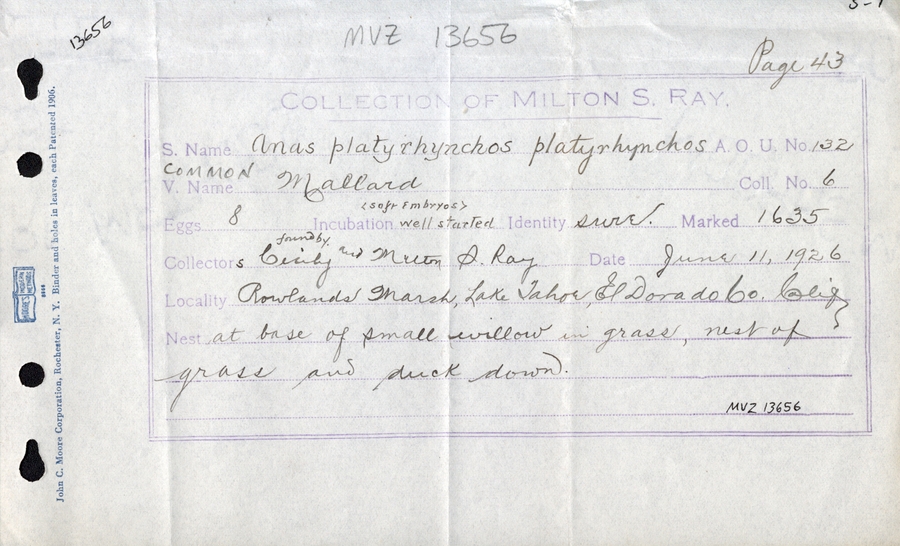 13656
MVZ 13656
Page 43
COLLECTION OF MILTON S. RAY.
S. Name Anas platyrhynchos platyrhynchos A. O. U. No. 132
COMMON
V. Name Mallard Coll. No. 6
(soft Embryos)
Eggs 8 Incubation well started Identity sure. Marked 1635
found by
Collectors and Milton S. Ray Date June 11, 1926
Locality Rowlands Marsh, Lake Tahoe, El Dorado Co.
Nest at base of small willow in grass, nest of
grass and duck down.
MVZ 13656
John C. Moore Corporation, Rochester, N. Y. Binder and holes in leaves, each Patented 1906.